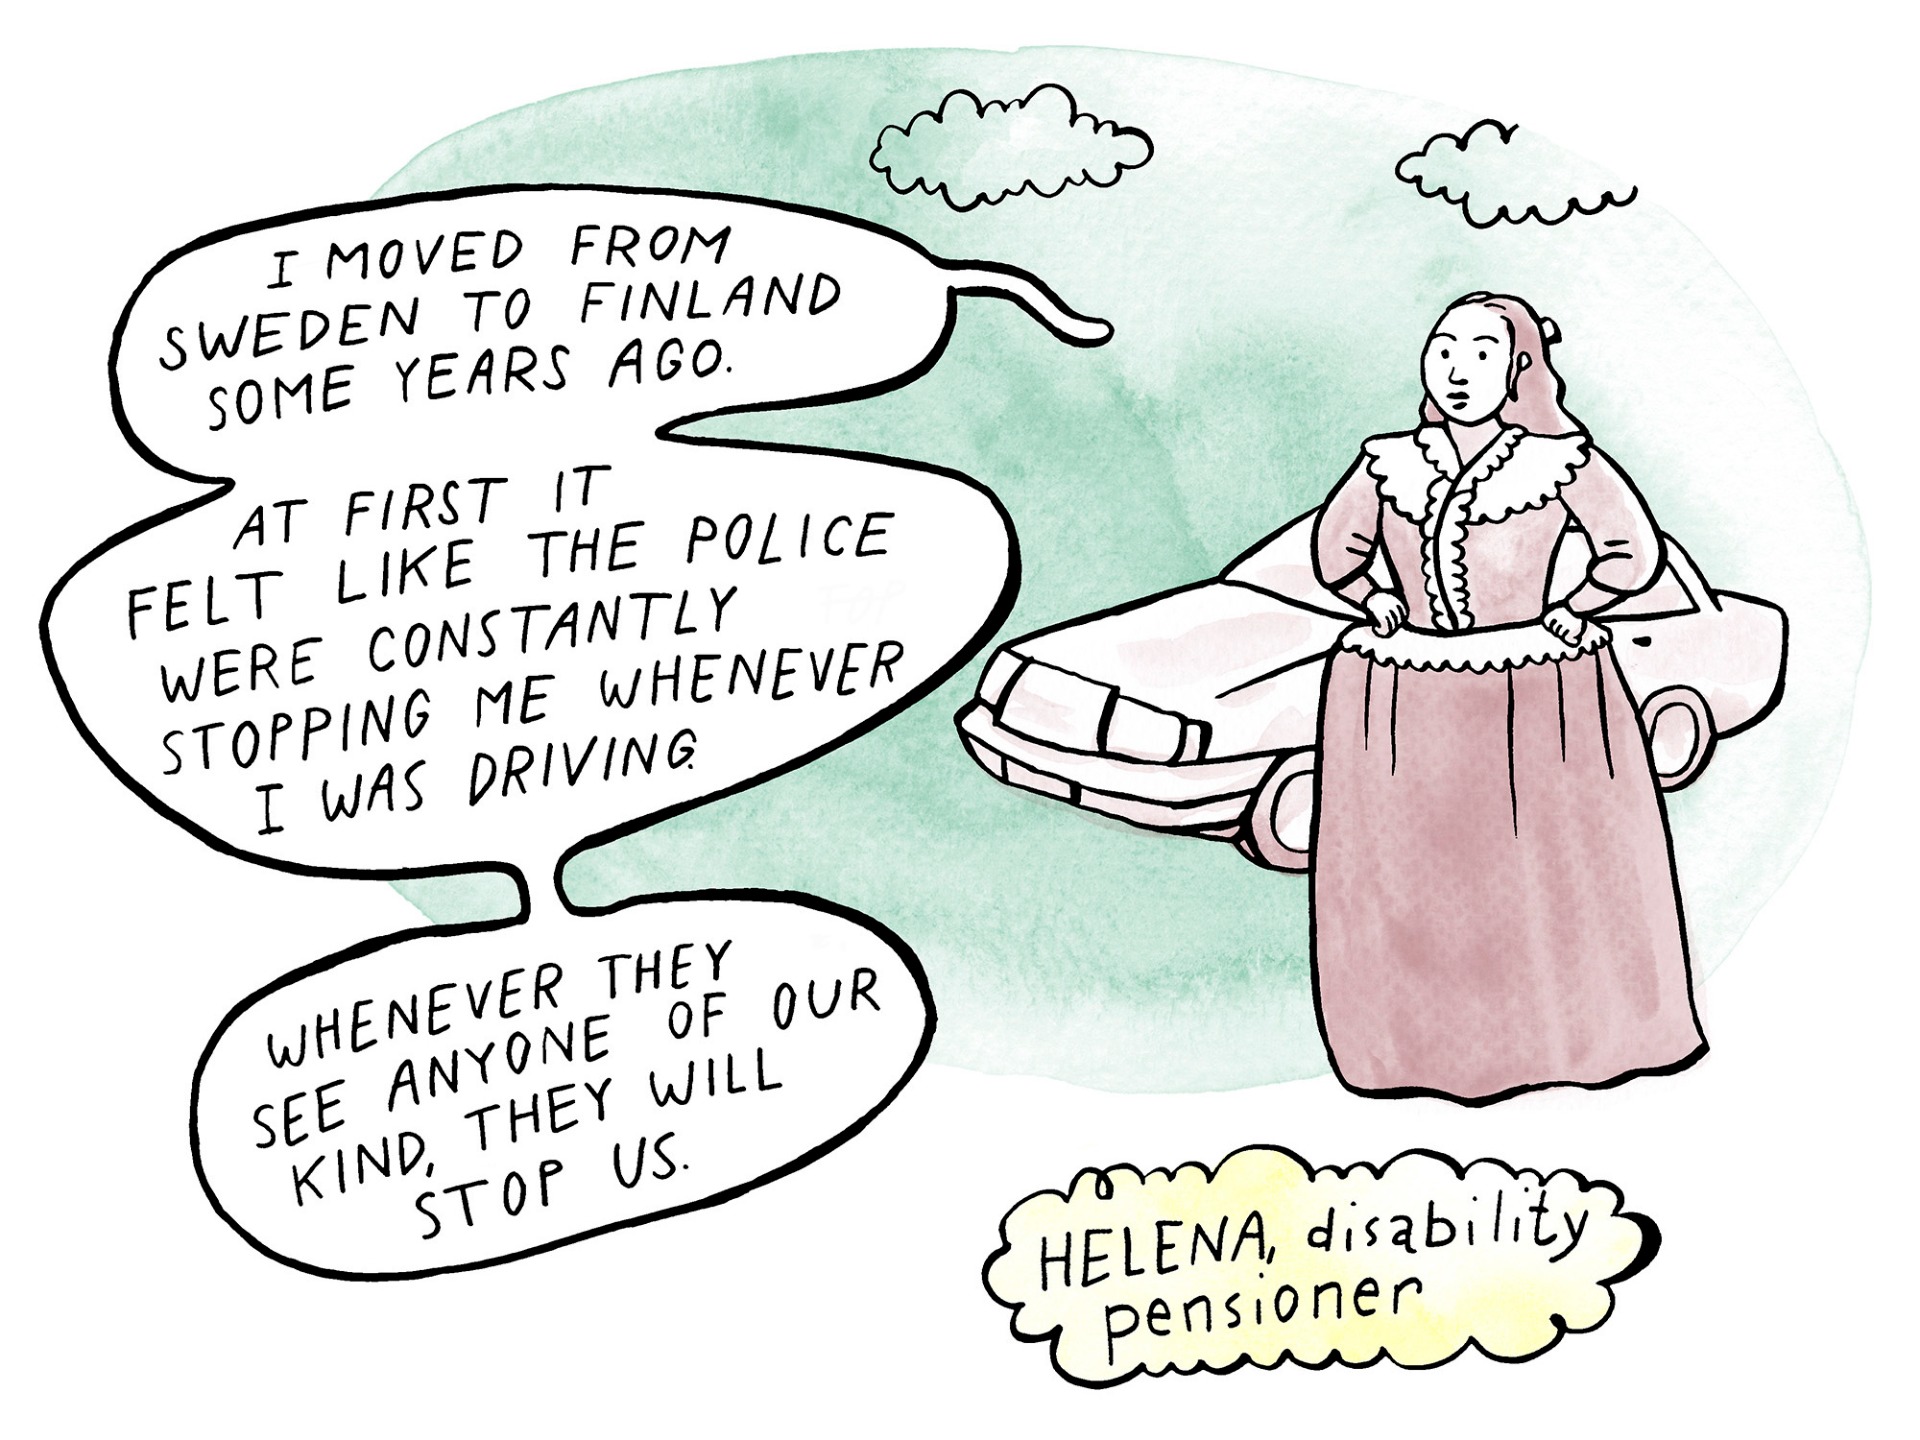 I MOVED FROM
SWEDEN TO FINLAND
SOME YEARS AGO.
AT FIRST IT
FELT LIKE THE POLICE
WERE CONSTANTLY
STOPPING ME WHENEVER
I WAS DRIVING.
WHENEVER THEY
SEE ANYONE OF OUR
KIND, THEY WILL
STOP US.
HELENA, disability
pensioner